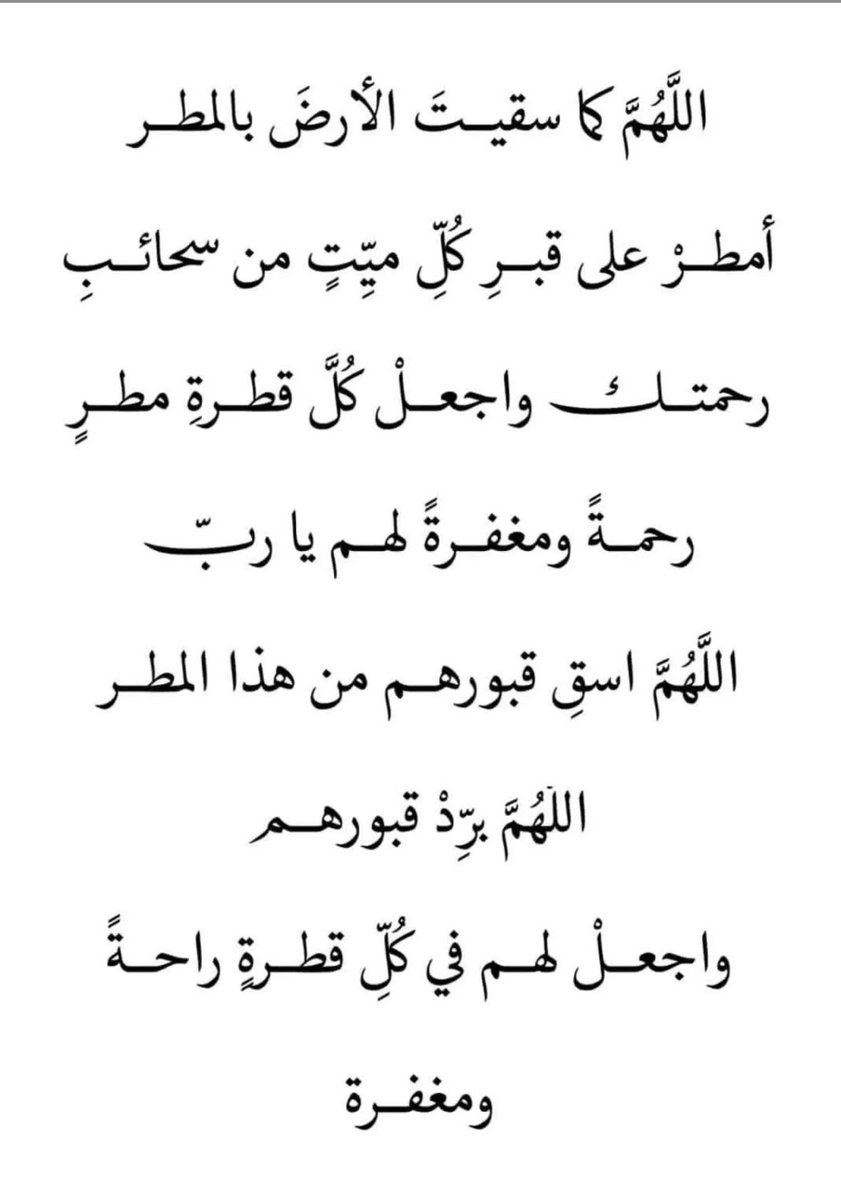 اللَّهُمَّ كما سقيـتَ الأرضَ بالمطـر
أمطـرْ على قبـرِ كُلِّ ميِّتٍ من سحائـبِ
رحمتـك واجعـلْ كُلَّ قطـرةِ مطـرٍ
رحمـةً ومغفـرةً لهـم يا ربّ
اللَّهُمَّ اسقِ قبورهـم من هذا المطـر
اللَهُمَّ برِّدْ قبورهـم
واجعـلْ لهـم في كُلِّ قطـرةٍ راحـةً
ومغفـرة